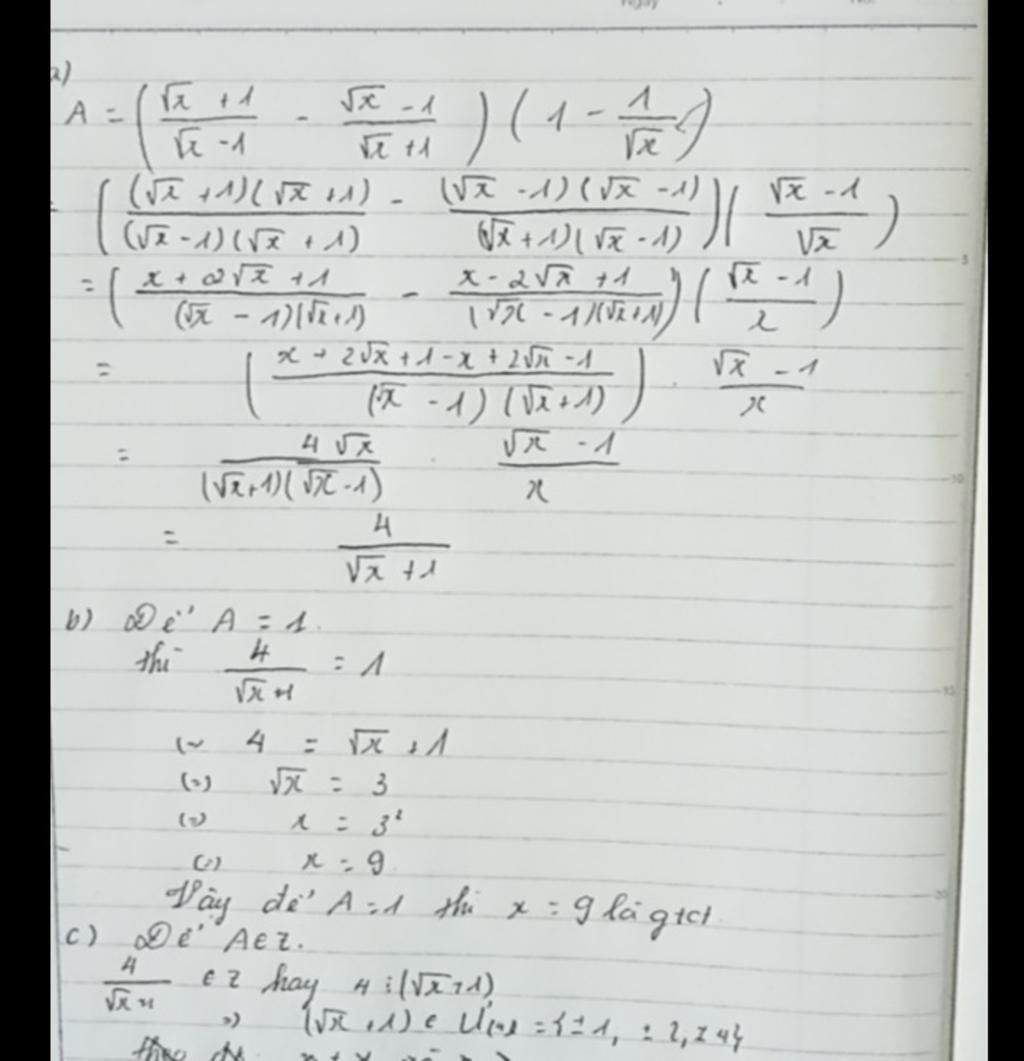 a)
A = ( (√x + 1)/(√x - 1) - (√x - 1)/(√x + 1) ) ( 1 - 1/√x )
= ( ((√x + 1)(√x + 1))/((√x - 1)(√x + 1)) - ((√x - 1)(√x - 1))/((√x + 1)(√x - 1)) ) ( (√x - 1)/√x )
= ( (x + 2√x + 1)/((√x - 1)(√x + 1)) - (x - 2√x + 1)/((√x - 1)(√x + 1)) ) ( (√x - 1)/x )
= ( (x + 2√x + 1 - x + 2√x - 1)/((√x - 1)(√x + 1)) ) . (√x - 1)/x
= (4√x)/((√x + 1)(√x - 1)) . (√x - 1)/x
= 4/(√x + 1)
b) Để A = 1.
thì 4/(√x + 1) = 1
(=) 4 = √x + 1
(=) √x = 3
(=) x = 3²
(=) x = 9
Vậy để A = 1 thì x = 9 là gtct
c) Để A ∈ Z.
4/(√x + 1) ∈ Z hay 4 ⋮ (√x + 1)
=) (√x + 1) ∈ Ư(4) = {±1, ±2, ±4}